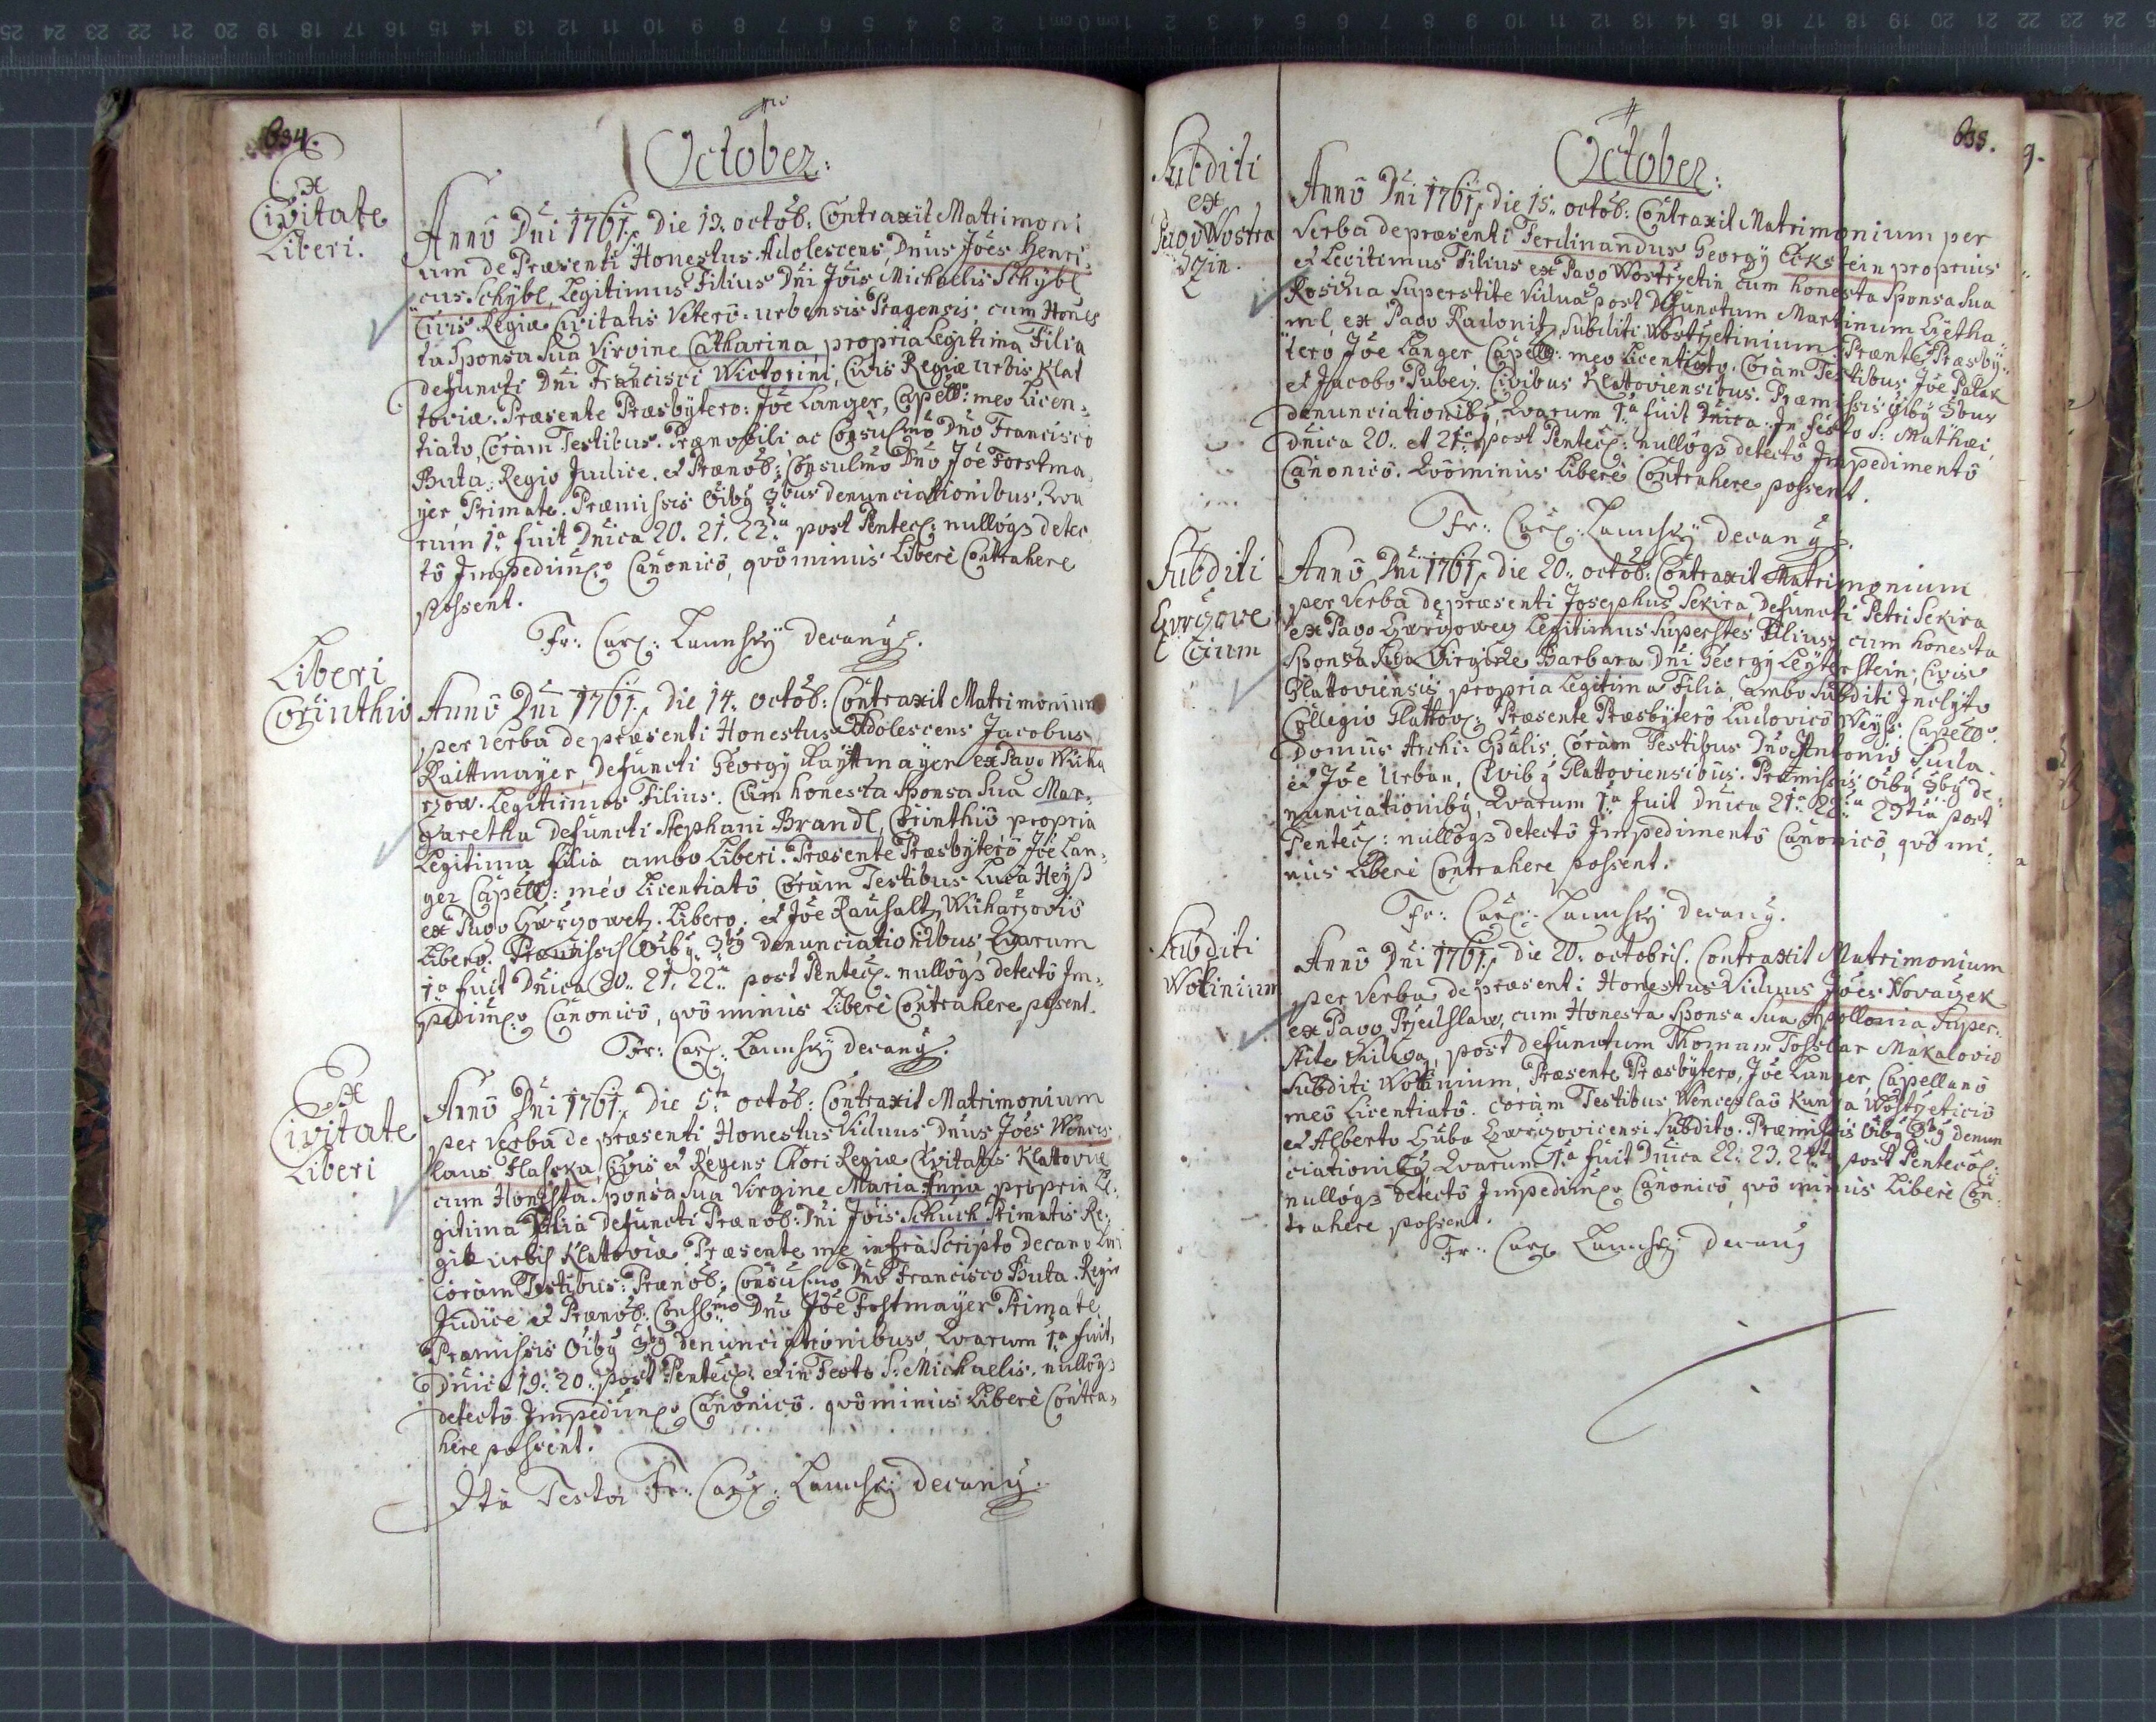 634.
October:
Ex
Civitate
Liberi.
Annô Dni 1761. Die 13. octob: Contraxit Matrimoni
um de Præsenti Honestus Adolescens, Dnus Joes Henri,
cus Schÿbl, Legitimus Filius Dni Jois Michaelis Schÿbl
Civis Regiæ Civitatis Vetero-urbensis Pragensis, cum Hones
ta Sponsa Sua Virgine Catharina, propria Legitima Filia
defuncti Dni Francisci Wictorini, Civis Regiæ urbis Klat
toviæ. Præsente Præsbÿtero: Joe Langer, Capell: meo Licen,
tiato, Coràm Testibus. Prænobili ac Consulmo Dno Francisco
Buta. Regio Judice. et Prænob: Consulmo Dno Joe Forstma,
ÿer Primate. Præmissis oibÿ 3bus denunciationibus, Qva
rum 1a fuit Dnica 20. 21. 22a post Pentec: nullôqz detec
tô Impedim: Canonicô, qvô minùs Liberè Contrahere
possent.
Fr: Car: Launskÿ decanÿ.
Liberi
Corinthio
Annô Dni 1761. Die 14. octob: Contraxit Matrimonium
per verba de præsenti Honestus Adolescens Jacobus
Raittmaÿer, defuncti Georgÿ Raÿttmaÿer ex Pago Wicha
rzow. Legitimus Filius. Cum honesta Sponsa Sua Mar,
garetha defuncti Stephani Brandl, Corinthiô propria
Legitima filia ambo Liberi. Præsente Præsbÿterô Joe Lan,
ger Capell: meo Licentiatô, Coràm Testibus Luca Heÿß
ex Pago Horzowetz. Libero. et Joe Rauhaltz Wicharzoviô
Libero. Præmissis oibÿ 3bÿ denunciationibus, Qvarum
1a fuit Dnica 20. 21. 22a post Pentec: nullôqz detectô Im,
pedim: Canonicô, qvô minùs Liberè Contrahere possent.
Fr: Car: Launskÿ decanÿ.
Ex
Civitate
Liberi
Annô Dni 1761. Die 5ta octob: Contraxit Matrimonium
per Verba de præsenti Honestus Viduus, Dnus Joes Wences
laus Flaska, Civis et Regens Chori Regiæ Civitatis Klattoviæ
cum Honesta Sponsa Sua Virgine Maria Anna propria Le,
gitima Filia defuncti Prænob: Dni Jois Schuch Primatis Re,
giæ urbis Klattoviæ Præsente me infrà Scripto decano
coràm Testibus: Prænob: Consulmo Dno Francisco Buta. Regio
Judice et Prænob: Conslmo Dno Joe Fostmaÿer Primate
Præmissis oibÿ 3bÿ denunciationibus, Qvarum 1a fuit
Dnica 19. 20. post Pentec: et in Festo S: Michaelis. nullôqz
detectô Impedim: Canonicô. qvô minùs Liberè Contra,
here possent.
Ita Testor Fr: Car: Launskÿ decanÿ.
635.
October:
Subditi
ex
Pago Wostra
dzin.
Annô Dni 1761. die 15. octob: Contraxit Matrimonium per
Verba de præsenti Ferdinandus Georgÿ Eckstein proprius
et Legitimus Filius ex Pago Wostrzetin cum honesta Sponsa Sua
Rosina Superstite Vidua post defunctum Martinum
ex Pago Radonitz, Subditi Wostrzetinium. Præsente Præsbÿ,
tero Joe Langer, Capell: meo Licentiato. Coràm Testibus Joe Palak
et Jacobo Pubey. Civibus Klatoviensibus. Præmissis oibÿ 3bus
denunciationibÿ, Qvarum 1a fuit Dnica. In festo S: Mathæi,
Dnica 20. et 21a post Pentec: nullôqz detectô Impedimentô
Canonicô. Qvôminùs Liberè Contrahere possent.
Fr: Car: Launskÿ decanÿ.
Subditi
Horzove
tzium
Annô Dni 1761. die 20. octob: Contraxit Matrimonium
per Verba de præsenti Josephus Sekira, defuncti Petri Sekira
ex Pago Horzowey Legitimus Superstes Filius, cum honesta
Sponsa Sua Virgine Barbara Dni Georgÿ Leÿterstein, Civis
Glattoviensis, propria Legitima Filia, ambo Subditi Inclÿto
Collegio Glattov: Præsente Præsbÿterô Ludovicô Weÿs: Capellô
Domûs Archi-, Coràm Testibus Dno Antonio Suda.
et Joe Urban, Civibÿ Glattoviensibûs. Præmissis oibÿ 3bÿ de,
nunciationibÿ, Qvarum 1a fuit Dnica 21a 22a 23tia post
Pentec: nullôqz detectô Impedimentô Canonicô, qvô mi,
nùs Liberè Contrahere possent.
Fr: Car: Launskÿ decanÿ.
Subditi
Wolinium
Annô Dni 1761. Die 20. octobris. Contraxit Matrimonium
per Verba de præsenti Honestus Viduus Joes Novaczek
ex Pago Przedslaw, cum Honesta Sponsa Sua Apollonia Super,
stite Vidua, post defunctum Thomam Makalovio
Subditi Wolinium, Præsente Præsbÿtero, Joe Langer, Capellanô
meô Licentiatô. coràm Testibus Wenceslaô Kunga Wostrzeticiô
et Alberto Huba Horzovicensi Subdito. Præmissis oibÿ 3bÿ denun
ciationibÿ, Qvarum 1a fuit Dnica 22. 23. 24ta post Pentecos:
nullôqz detectô Impedim: Canonicô, qvô minùs Liberè Con,
trahere possent.
Fr: Car: Launskÿ decanÿ